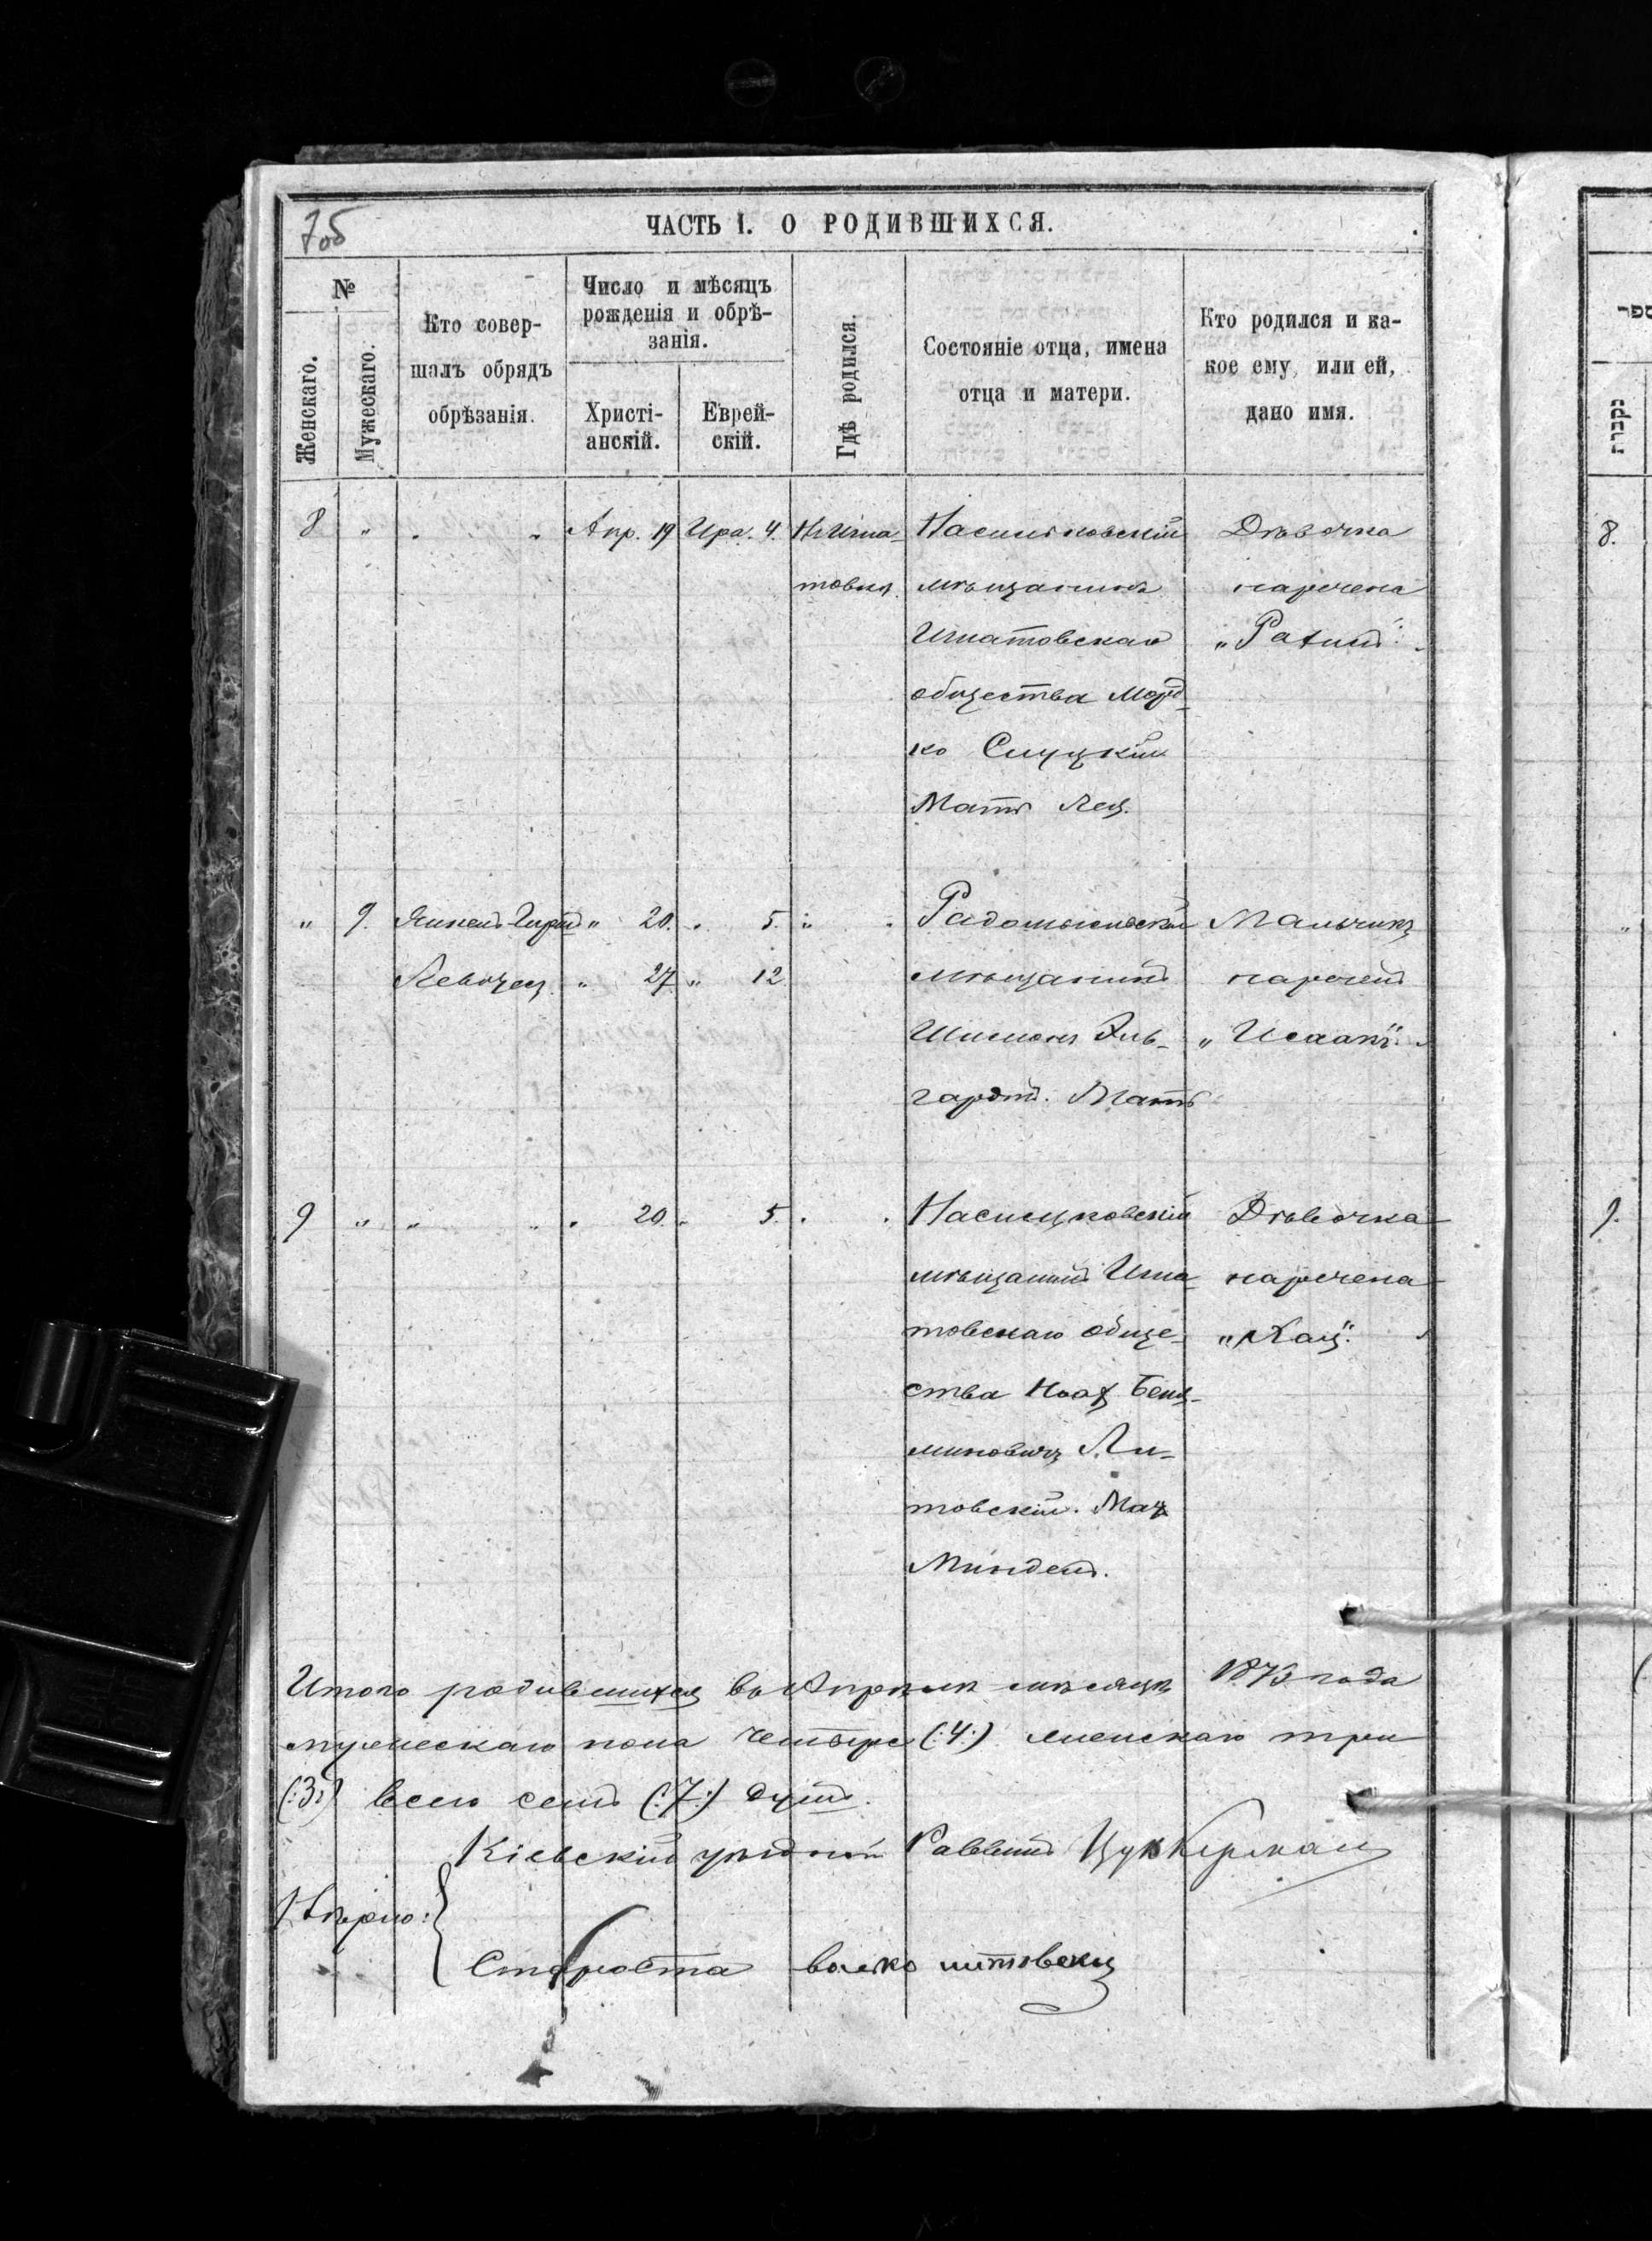 7об
ЧАСТЬ I. О РОДИВШИХСЯ.
№
Женскаго.
Мужескаго.
Кто совер-
шалъ обрядъ
обрѣзанія.
Число и мѣсяцъ
рожденія и обрѣ-
занія.
Христі-
анскій.
Еврей-
скій.
Гдѣ родился.
Состояніе отца, имена
отца и матери.
Кто родился и ка-
кое ему, или ей,
дано имя.
8 " " " Апр. 19 Ира. 4. Игна-
товка
мѣщанинъ
Игнатовскаго
общества Морд-
ко Слуцкій
Мать Лея.
Дѣвочка
наречена
„Рахиль".
" 9. " 20. " 5. " "
Левчецъ " 27 " 12
Радомысльскій
мѣщанинъ
Шимонъ Эль-
гардтъ. Мать
Мальчикъ
нареченъ
„Исаакъ".
9 " " " " 20. " 5. " "
мѣщанинъ Игна
товскаго обще-
ства Ноах Бень-
миновичъ Ли-
товскій. Мать
Миндель.
Дѣвочка
наречена
„Хая".
Итого родившихся въ Апрѣлѣ мѣсяцѣ 1873 года
мужескаго пола четыре (:4:) женскаго три
(:3:) всего семь (:7:) душъ.
Кіевскій уѣздный Раввинъ Цуккерман
Вѣрно:
Староста волко литовски
8.
9.